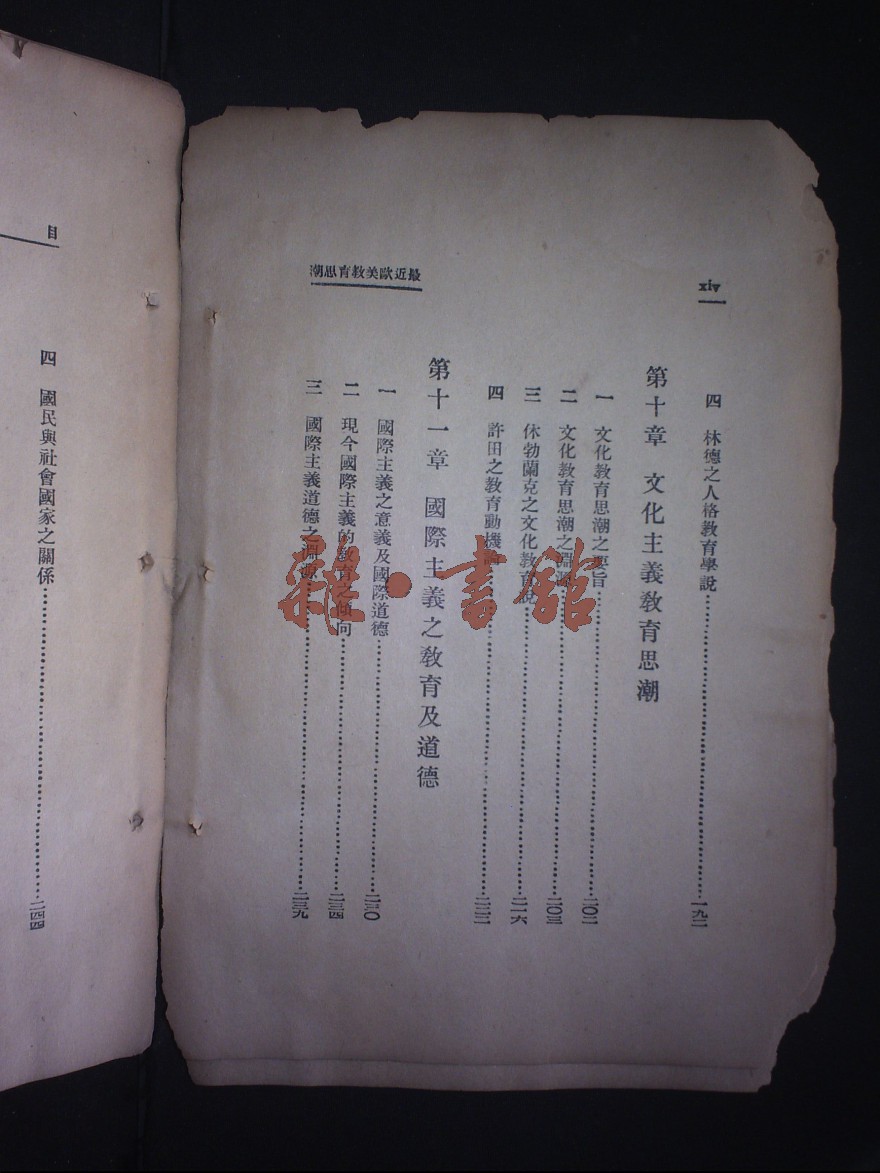 xiv
最近歐美教育思潮
四 林德之人格教育學說……一九二
第十章 文化主義教育思潮
一 文化教育思潮之要旨……二〇二
二 文化教育思潮之淵源……二〇三
三 休勃蘭克之文化教育說……二一六
四 許田之教育動機論……二二三
第十一章 國際主義之教育及道德
一 國際主義之意義及國際道德……二三〇
二 現今國際主義的教育之傾向……二三四
三 國際主義道德之淵源……二三九
目
四 國民與社會國家之關係……二四四
雜·書館